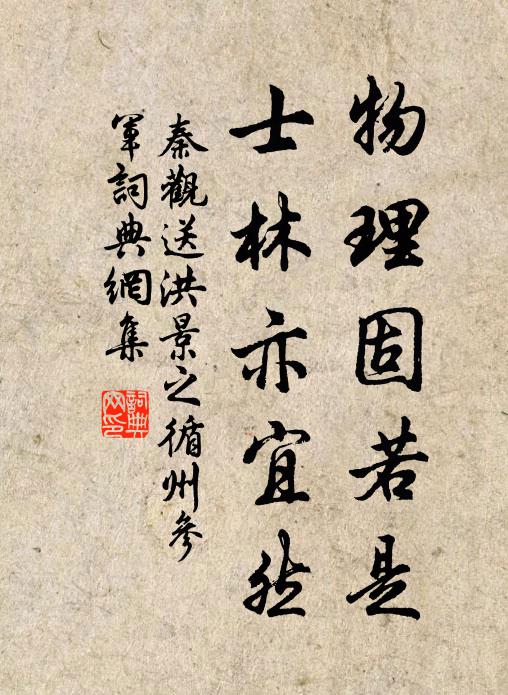 物理固若是
士林亦宜然
秦觀送洪景之循州參
軍詞典網集
詞典
网印